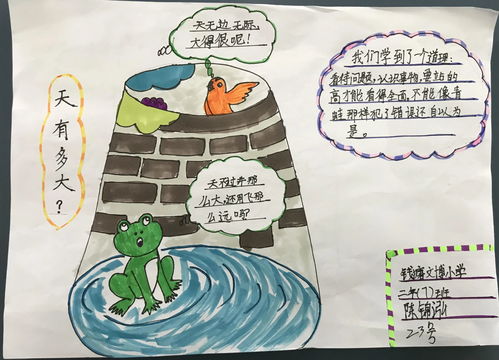 天有多大？
天无边无际，
大得很呢！
天不过井那
么大，还用飞那
么远吗？
我们学到了个道理：
看待问题，认识事物，要站的
高才能看得全面，不能像青
蛙那样犯了错误还自以为
是。
钱塘文博小学
二年(7)班
陈
23号